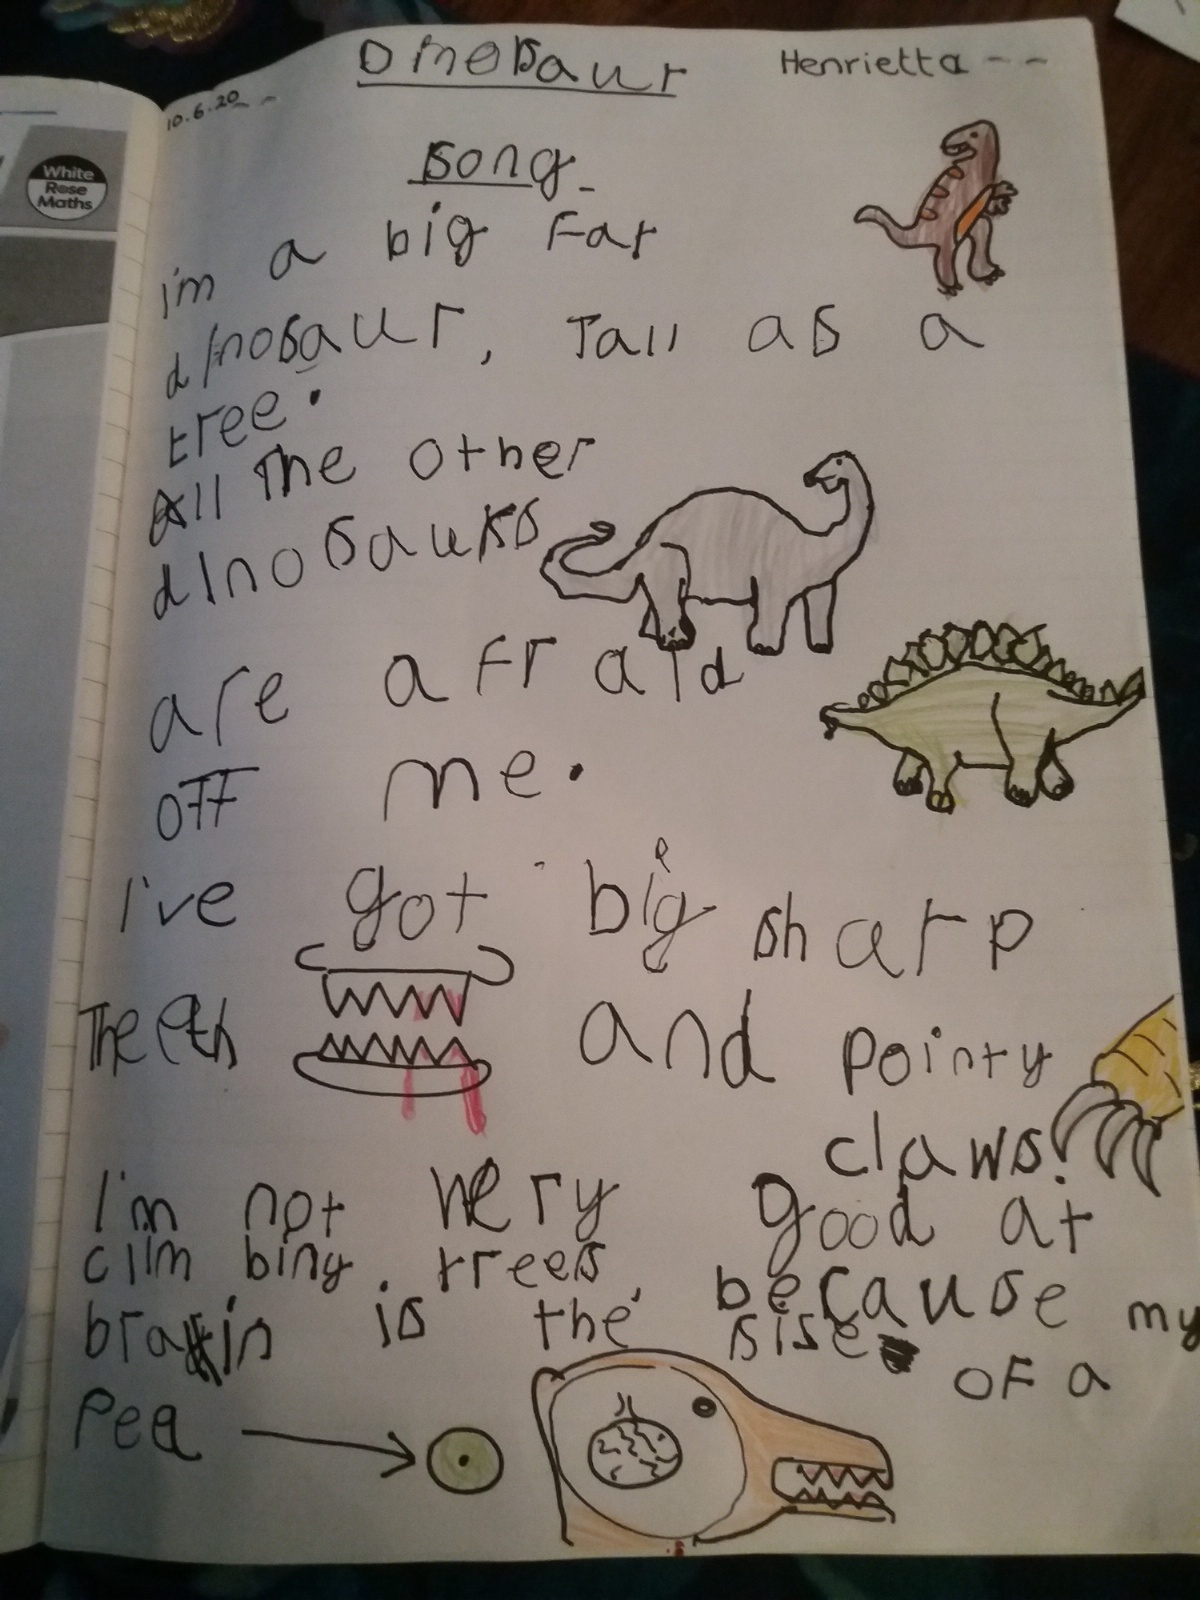 Dinosaur
Henrietta
10.6.20
song
White
Rose
Maths
i'm a big Fat
dinosaur, Tall as a
tree.
All The other
dinosaurs
are afraid
OFF me.
I've got big sharp
Theeth and pointy
claws.
I'm not very good at
climbing. trees, because my
brain is the sise
OF a
Pea